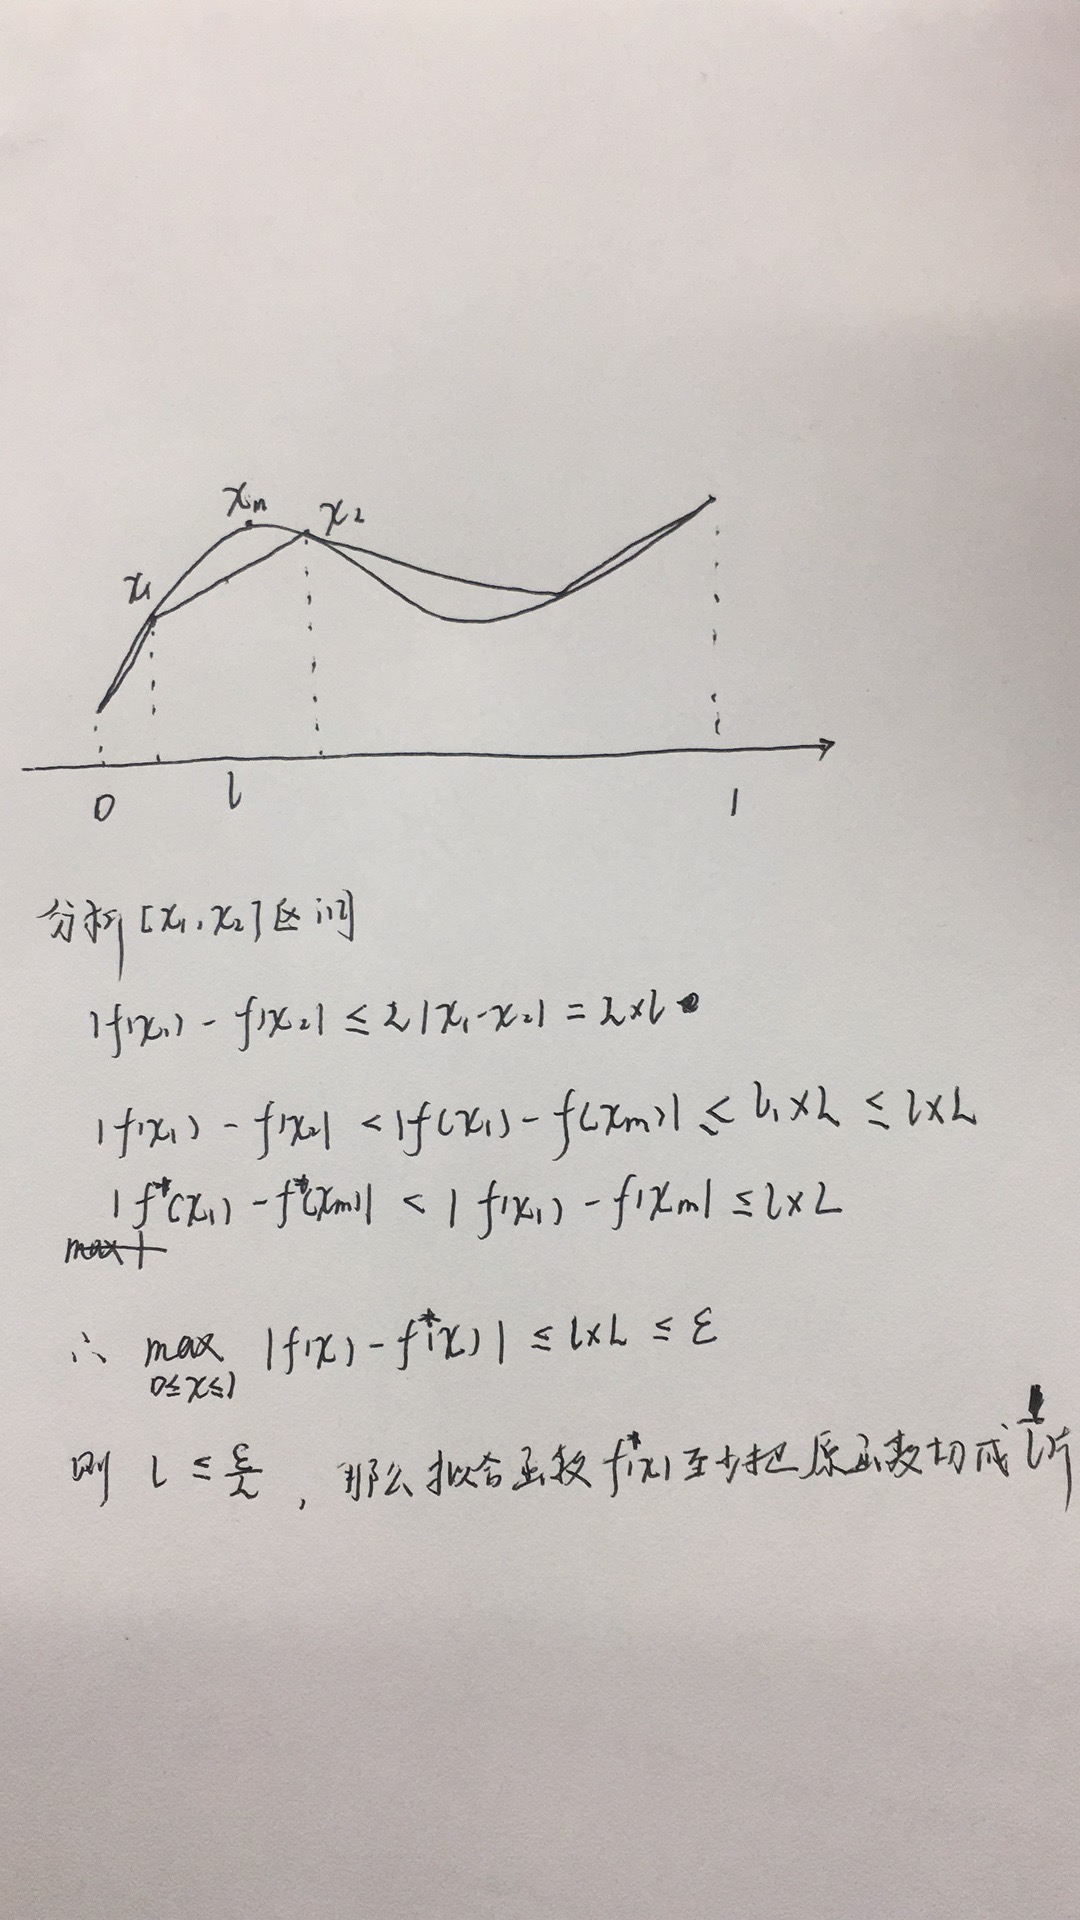 xm
x2
x1
0 l 1
分析[x1,x2]区间
|f(x1) - f(x2)| ≤ L|x1-x2| = L×l
|f(x1) - f(x2)| < |f(x1) - f(xm)| ≤ l1×L ≤ l×L
|f*(x1) - f*(xm)| < |f(x1) - f(xm)| ≤ l×L
∴ max |f(x) - f*(x)| ≤ l×L ≤ ε
0≤x≤1
则 l ≤ ε/L , 那么拟合函数f*(x)至少把原函数切成1/l片